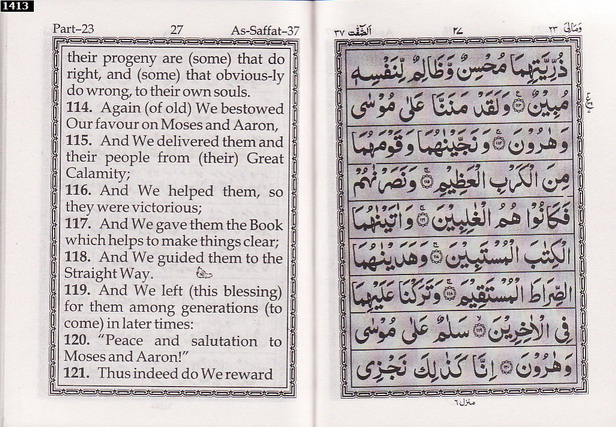 1413
Part–23 27 As-Saffat–37
their progeny are (some) that do
right, and (some) that obvious-ly
do wrong, to their own souls.
114. Again (of old) We bestowed
Our favour on Moses and Aaron,
115. And We delivered them and
their people from (their) Great
Calamity;
116. And We helped them, so
they were victorious;
117. And We gave them the Book
which helps to make things clear;
118. And We guided them to the
Straight Way.
119. And We left (this blessing)
for them among generations (to
come) in later times:
120. “Peace and salutation to
Moses and Aaron!”
121. Thus indeed do We reward
وَمَالِىَ ٢٣ ٢٧ اَلصّٰٓفّٰت ٣٧
ذُرِّيَّتِهِمَا مُحْسِنٌ وَّظَالِمٌ لِّنَفْسِهٖ
مُبِيْنٌ ۝١١٣ وَلَقَدْ مَنَنَّا عَلٰى مُوْسٰى
وَهٰرُوْنَ ۝١١٤ وَنَجَّيْنٰهُمَا وَقَوْمَهُمَا
مِنَ الْكَرْبِ الْعَظِيْمِ ۝١١٥ وَنَصَرْنٰهُمْ
فَكَانُوْا هُمُ الْغٰلِبِيْنَ ۝١١٦ وَاٰتَيْنٰهُمَا
الْكِتٰبَ الْمُسْتَبِيْنَ ۝١١٧ وَهَدَيْنٰهُمَا
الصِّرَاطَ الْمُسْتَقِيْمَ ۝١١٨ وَتَرَكْنَا عَلَيْهِمَا
فِى الْاٰخِرِيْنَ ۝١١٩ سَلٰمٌ عَلٰى مُوْسٰى
وَهٰرُوْنَ ۝١٢٠ اِنَّا كَذٰلِكَ نَجْزِى
منزل ٦